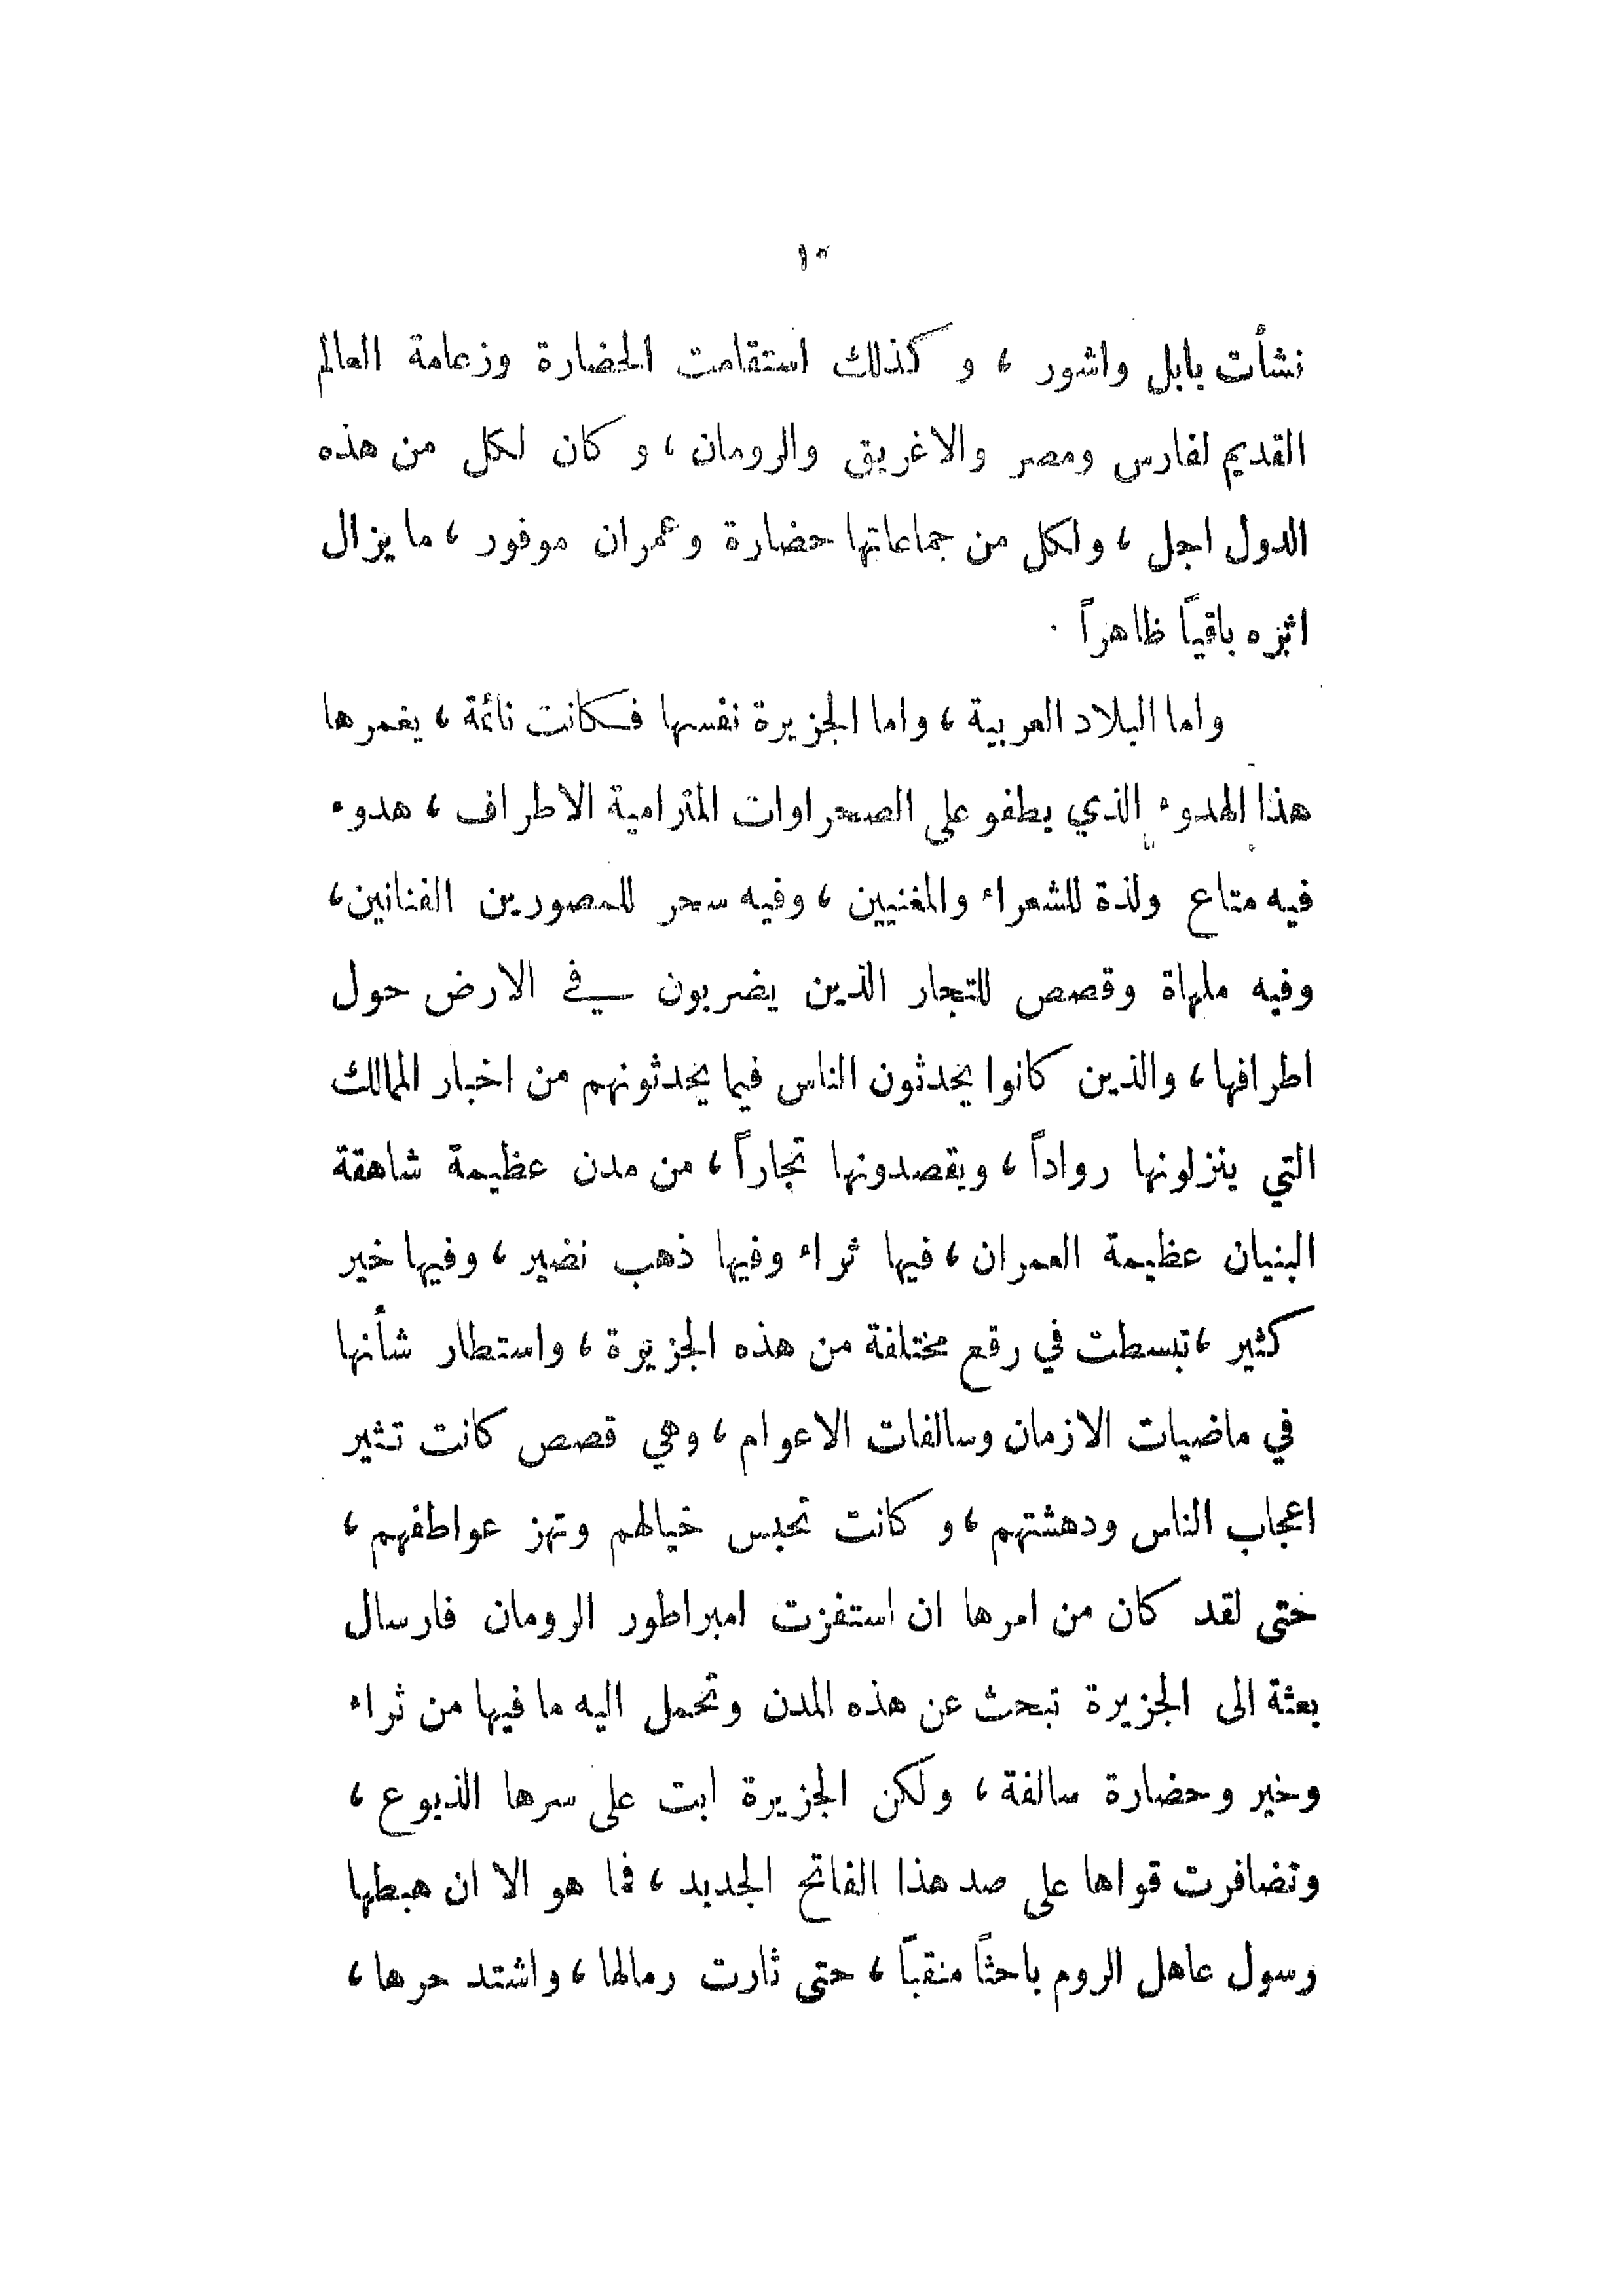 ١٠
نشأت بابل واشور ، وكذلك استقامت الحضارة وزعامة العالم
القديم لفارس ومصر والاغريق والرومان ، وكان لكل من هذه
الدول اجل ، ولكل من جماعاتها حضارة وعمران موفور ، ما يزال
اثره باقياً ظاهراً .
واما البلاد العربية ، واما الجزيرة نفسها فكانت نائمة ، يغمرها
هذا الهدوء الذي يطفو على الصحراوات المترامية الاطراف ، هدوء
فيه متاع ولذة للشعراء والمغنيين ، وفيه سحر للمصورين الفنانين ،
وفيه ملهاة وقصص للتجار الذين يضربون في الارض حول
اطرافها ، والذين كانوا يحدثون الناس فيما يحدثونهم من اخبار الممالك
التي ينزلونها رواداً ، ويقصدونها تجاراً ، من مدن عظيمة شاهقة
البنيان عظيمة العمران ، فيها ثراء وفيها ذهب نضير ، وفيها خير
كثير ، تبسطت في رقع مختلفة من هذه الجزيرة ، واستطار شأنها
في ماضيات الازمان وسالفات الاعوام ، وهي قصص كانت تثير
اعجاب الناس ودهشتهم ، وكانت تحبس خيالهم وتهز عواطفهم ،
حتى لقد كان من امرها ان استفزت امبراطور الرومان فارسال
بعثة الى الجزيرة تبحث عن هذه المدن وتحمل اليه ما فيها من ثراء
وخير وحضارة سالفة ، ولكن الجزيرة ابت على سرها الذيوع ،
وتضافرت قواها على صد هذا الفاتح الجديد ، فما هو الا ان هبطها
رسول عاهل الروم باحثاً منقباً ، حتى ثارت رمالها ، واشتد حرها ،